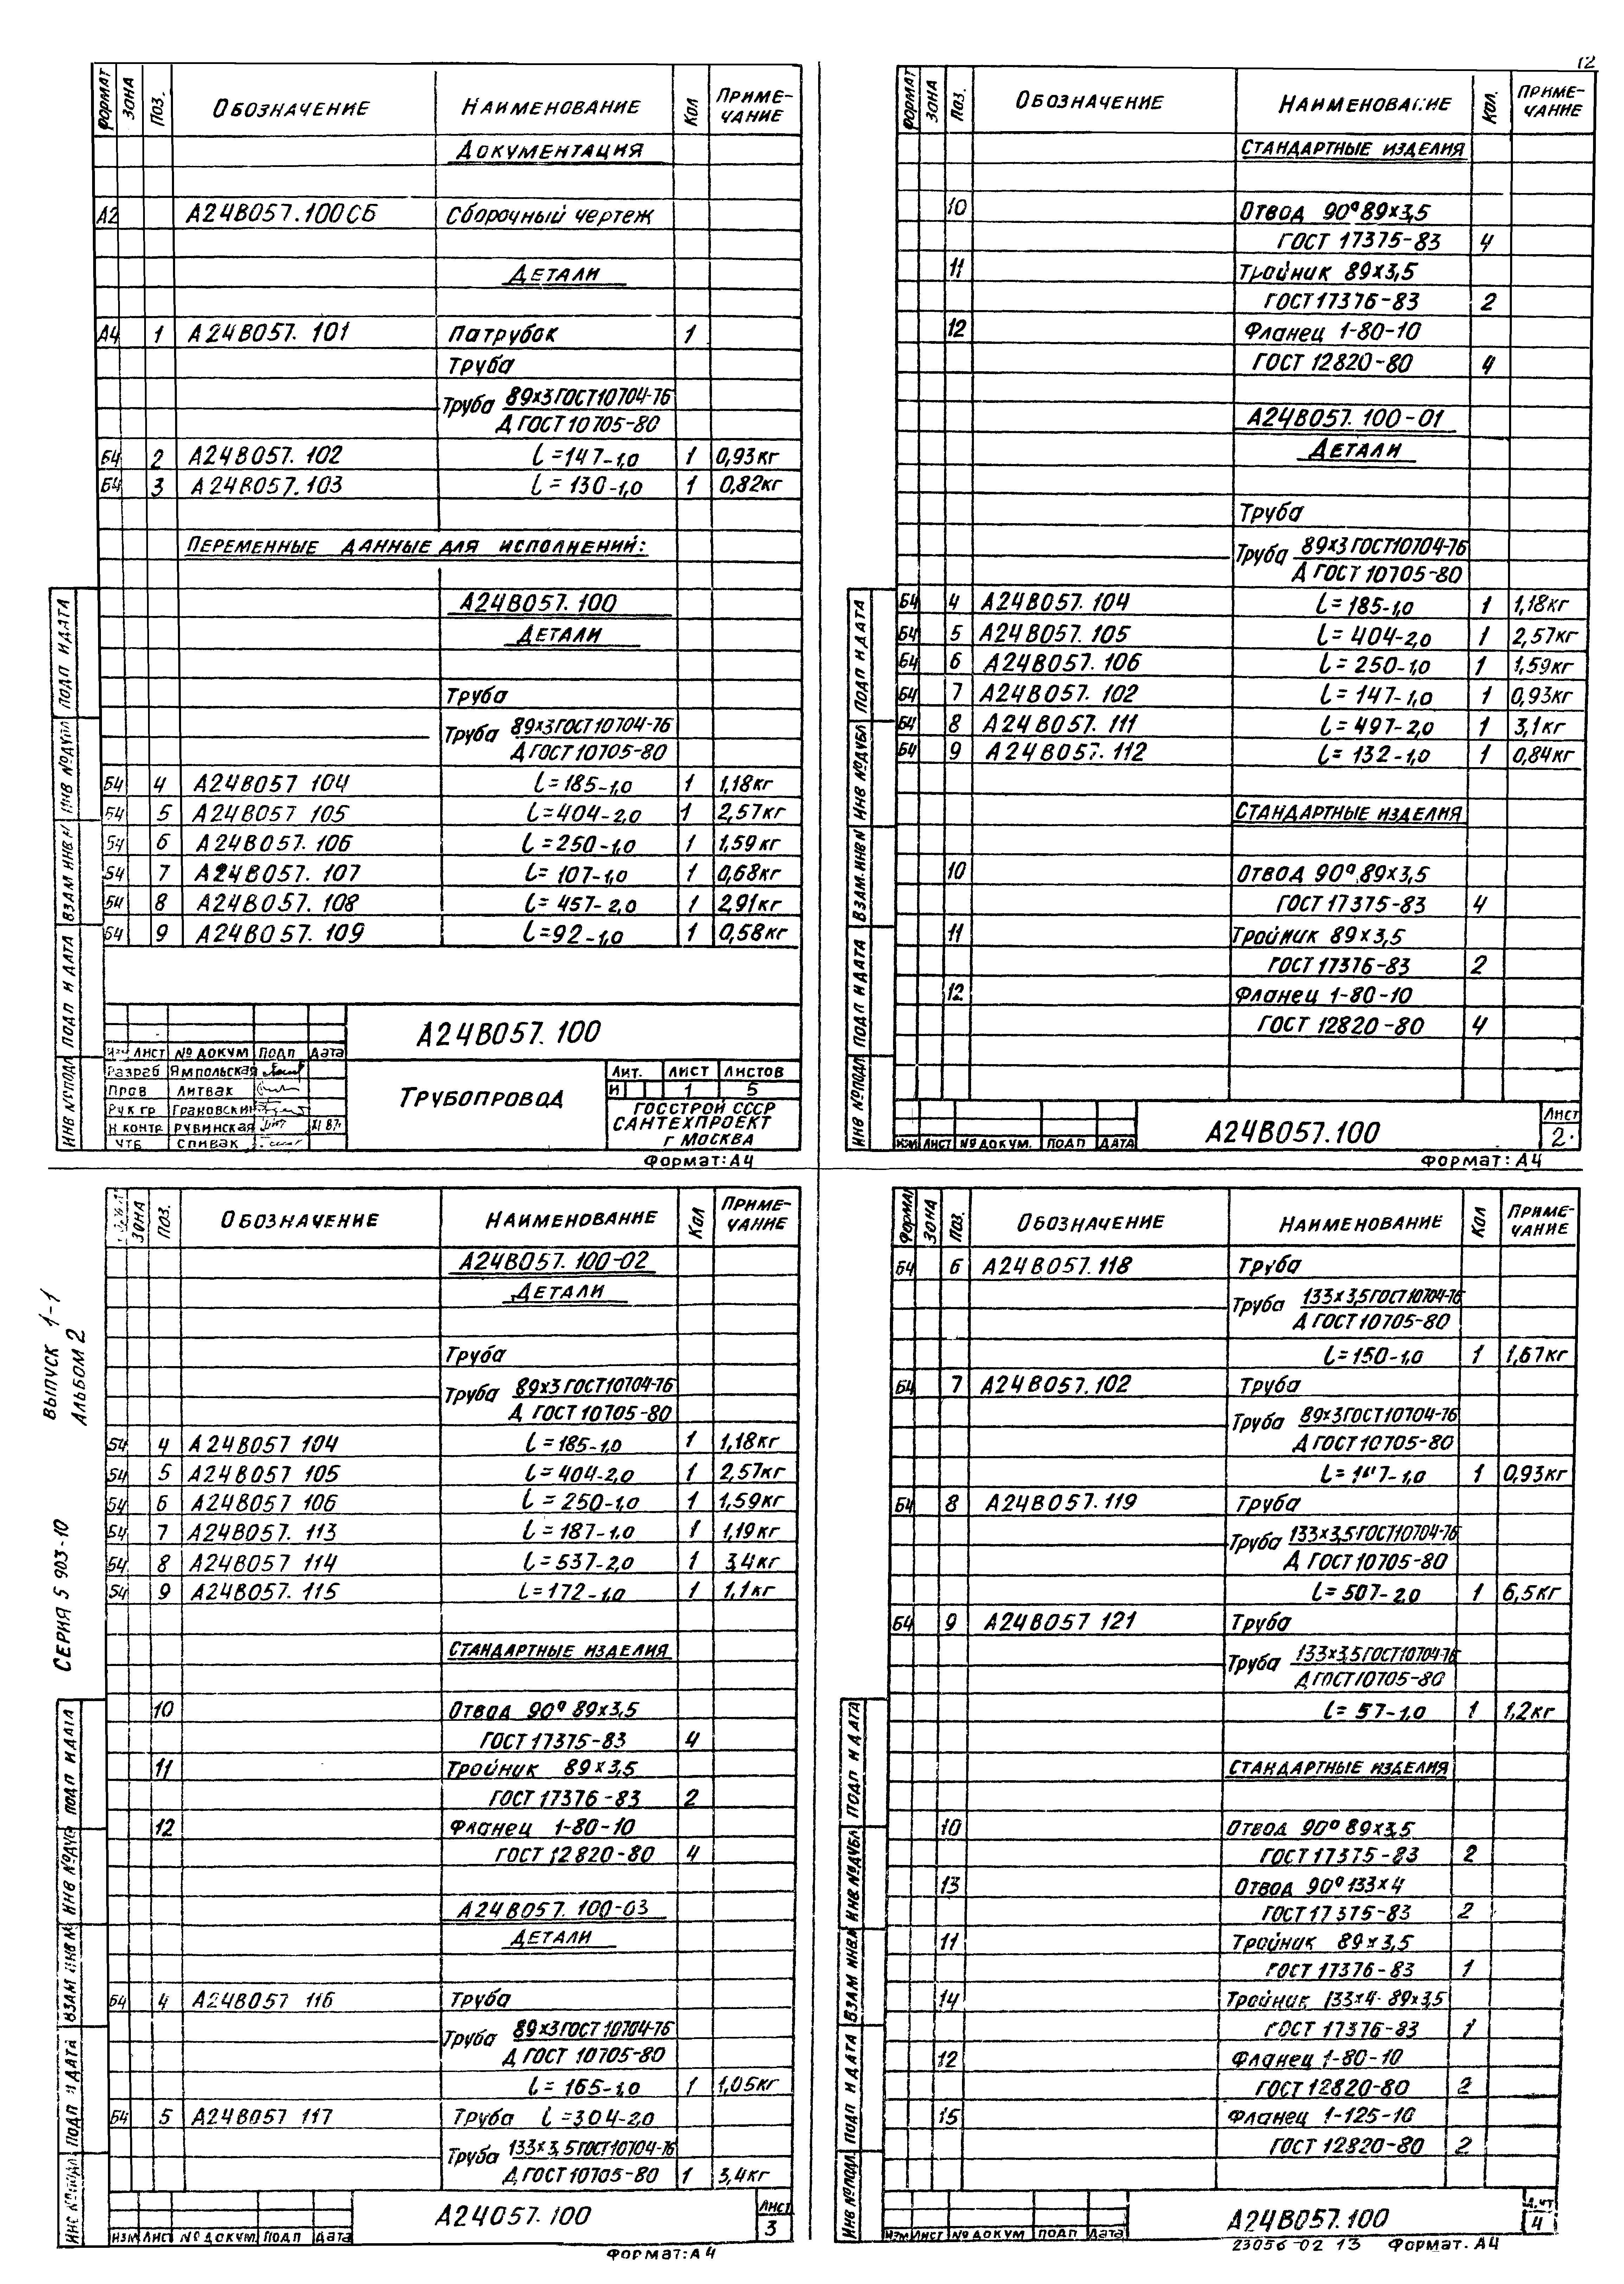 12
ФОРМАТ ЗОНА ПОЗ. ОБОЗНАЧЕНИЕ НАИМЕНОВАНИЕ КОЛ ПРИМЕ-ЧАНИЕ
ДОКУМЕНТАЦИЯ
А2 А24В057.100СБ Сборочный чертеж
ДЕТАЛИ
А4 1 А24В057.101 Патрубок 1
Труба
Труба 89х3 ГОСТ 10704-76
Д ГОСТ 10705-80
Б4 2 А24В057.102 l=147-1,0 1 0,93кг
Б4 3 А24В057.103 l=130-1,0 1 0,82кг
ПЕРЕМЕННЫЕ ДАННЫЕ ДЛЯ ИСПОЛНЕНИЙ:
А24В057.100
ДЕТАЛИ
Труба
Труба 89х3 ГОСТ 10704-76
Д ГОСТ 10705-80
Б4 4 А24В057 104 l=185-1,0 1 1,18кг
Б4 5 А24В057 105 l=404-2,0 1 2,57кг
Б4 6 А24В057.106 l=250-1,0 1 1,59кг
Б4 7 А24В057.107 l=107-1,0 1 0,68кг
Б4 8 А24В057.108 l=457-2,0 1 2,91кг
Б4 9 А24В057.109 l=92-1,0 1 0,58кг
ИНВ №ПОДЛ ПОДП И ДАТА ВЗАМ ИНВ № ИНВ №ДУБЛ ПОДП И ДАТА
А24В057.100
Изм ЛИСТ № ДОКУМ ПОДП ДАТА
Разраб Ямпольская
Пров Литвак
Рук гр Грановский
Н контр Рувинская XI 87г
УТБ Спивак
ТРУБОПРОВОД
ЛИТ. ЛИСТ ЛИСТОВ
И 1 5
ГОССТРОЙ СССР
САНТЕХПРОЕКТ
г МОСКВА
Формат: А4
ФОРМАТ ЗОНА ПОЗ. ОБОЗНАЧЕНИЕ НАИМЕНОВАНИЕ КОЛ. ПРИМЕ-ЧАНИЕ
СТАНДАРТНЫЕ ИЗДЕЛИЯ
10 Отвод 90° 89х3,5
ГОСТ 17375-83 4
11 Тройник 89х3,5
ГОСТ 17376-83 2
12 Фланец 1-80-10
ГОСТ 12820-80 4
А24В057.100-01
ДЕТАЛИ
Труба
Труба 89х3 ГОСТ 10704-76
Д ГОСТ 10705-80
Б4 4 А24В057.104 l=185-1,0 1 1,18кг
Б4 5 А24В057.105 l=404-2,0 1 2,57кг
Б4 6 А24В057.106 l=250-1,0 1 1,59кг
Б4 7 А24В057.102 l=147-1,0 1 0,93кг
Б4 8 А24В057.111 l=497-2,0 1 3,1кг
Б4 9 А24В057.112 l=132-1,0 1 0,84кг
СТАНДАРТНЫЕ ИЗДЕЛИЯ
10 Отвод 90° 89х3,5
ГОСТ 17375-83 4
11 Тройник 89х3,5
ГОСТ 17376-83 2
12 Фланец 1-80-10
ГОСТ 12820-80 4
ИНВ №ПОДЛ ПОДП И ДАТА ВЗАМ. ИНВ № ИНВ №ДУБЛ ПОДП И ДАТА
ИЗМ ЛИСТ № ДОКУМ. ПОДП ДАТА
А24В057.100
ЛИСТ
2
Формат: А4
ВЫПУСК 1-1
АЛЬБОМ 2
СЕРИЯ 5 903-10
ЗОНА ПОЗ. ОБОЗНАЧЕНИЕ НАИМЕНОВАНИЕ КОЛ ПРИМЕ-ЧАНИЕ
А24В057.100-02
ДЕТАЛИ
Труба
Труба 89х3 ГОСТ 10704-76
Д ГОСТ 10705-80
Б4 4 А24В057 104 l=185-1,0 1 1,18кг
Б4 5 А24В057 105 l=404-2,0 1 2,57кг
Б4 6 А24В057 106 l=250-1,0 1 1,59кг
Б4 7 А24В057.113 l=187-1,0 1 1,19кг
Б4 8 А24В057 114 l=537-2,0 1 3,4кг
Б4 9 А24В057.115 l=172-1,0 1 1,1кг
СТАНДАРТНЫЕ ИЗДЕЛИЯ
10 Отвод 90° 89х3,5
ГОСТ 17375-83 4
11 Тройник 89х3,5
ГОСТ 17376-83 2
12 Фланец 1-80-10
ГОСТ 12820-80 4
А24В057.100-03
ДЕТАЛИ
Б4 4 А24В057 116 Труба
Труба 89х3 ГОСТ 10704-76
Д ГОСТ 10705-80
l=165-1,0 1 1,05кг
Б4 5 А24В057 117 Труба l=304-2,0
Труба 133х3,5 ГОСТ 10704-76
Д ГОСТ 10705-80 1 3,4кг
ПОДП И ДАТА ВЗАМ ИНВ № ИНВ №ДУБ ПОДП И ДАТА
ИЗМ ЛИСТ № ДОКУМ. ПОДП ДАТА
А24057.100
ЛИСТ
3
Формат: А4
ФОРМАТ ЗОНА ПОЗ. ОБОЗНАЧЕНИЕ НАИМЕНОВАНИЕ КОЛ ПРИМЕ-ЧАНИЕ
Б4 6 А24В057.118 Труба
Труба 133х3,5 ГОСТ 10704-76
Д ГОСТ 10705-80
l=150-1,0 1 1,67кг
Б4 7 А24В057.102 Труба
Труба 89х3 ГОСТ 10704-76
Д ГОСТ 10705-80
1 0,93кг
Б4 8 А24В057.119 Труба
Труба 133х3,5 ГОСТ 10704-76
Д ГОСТ 10705-80
l=507-2,0 1 6,5кг
Б4 9 А24В057 121 Труба
Труба 133х3,5 ГОСТ 10704-76
Д ГОСТ 10705-80
l=57-1,0 1 1,2кг
СТАНДАРТНЫЕ ИЗДЕЛИЯ
10 Отвод 90° 89х3,5
ГОСТ 17375-83 2
13 Отвод 90° 133х4
ГОСТ 17375-83 2
11 Тройник 89х3,5
ГОСТ 17376-83 1
14 Тройник 133х4-89х3,5
ГОСТ 17376-83 1
12 Фланец 1-80-10
ГОСТ 12820-80 2
15 Фланец 1-125-10
ГОСТ 12820-80 2
ИНВ №ПОДЛ ПОДП И ДАТА ВЗАМ ИНВ.№ ИНВ.№ДУБЛ ПОДП И ДАТА
ИЗМ ЛИСТ № ДОКУМ ПОДП ДАТА
А24В057.100
4
23056-02 13 Формат. А4